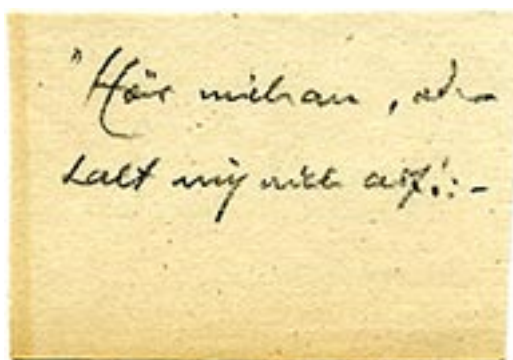 "Hör mich an, oder
halt mich nicht auf!: -